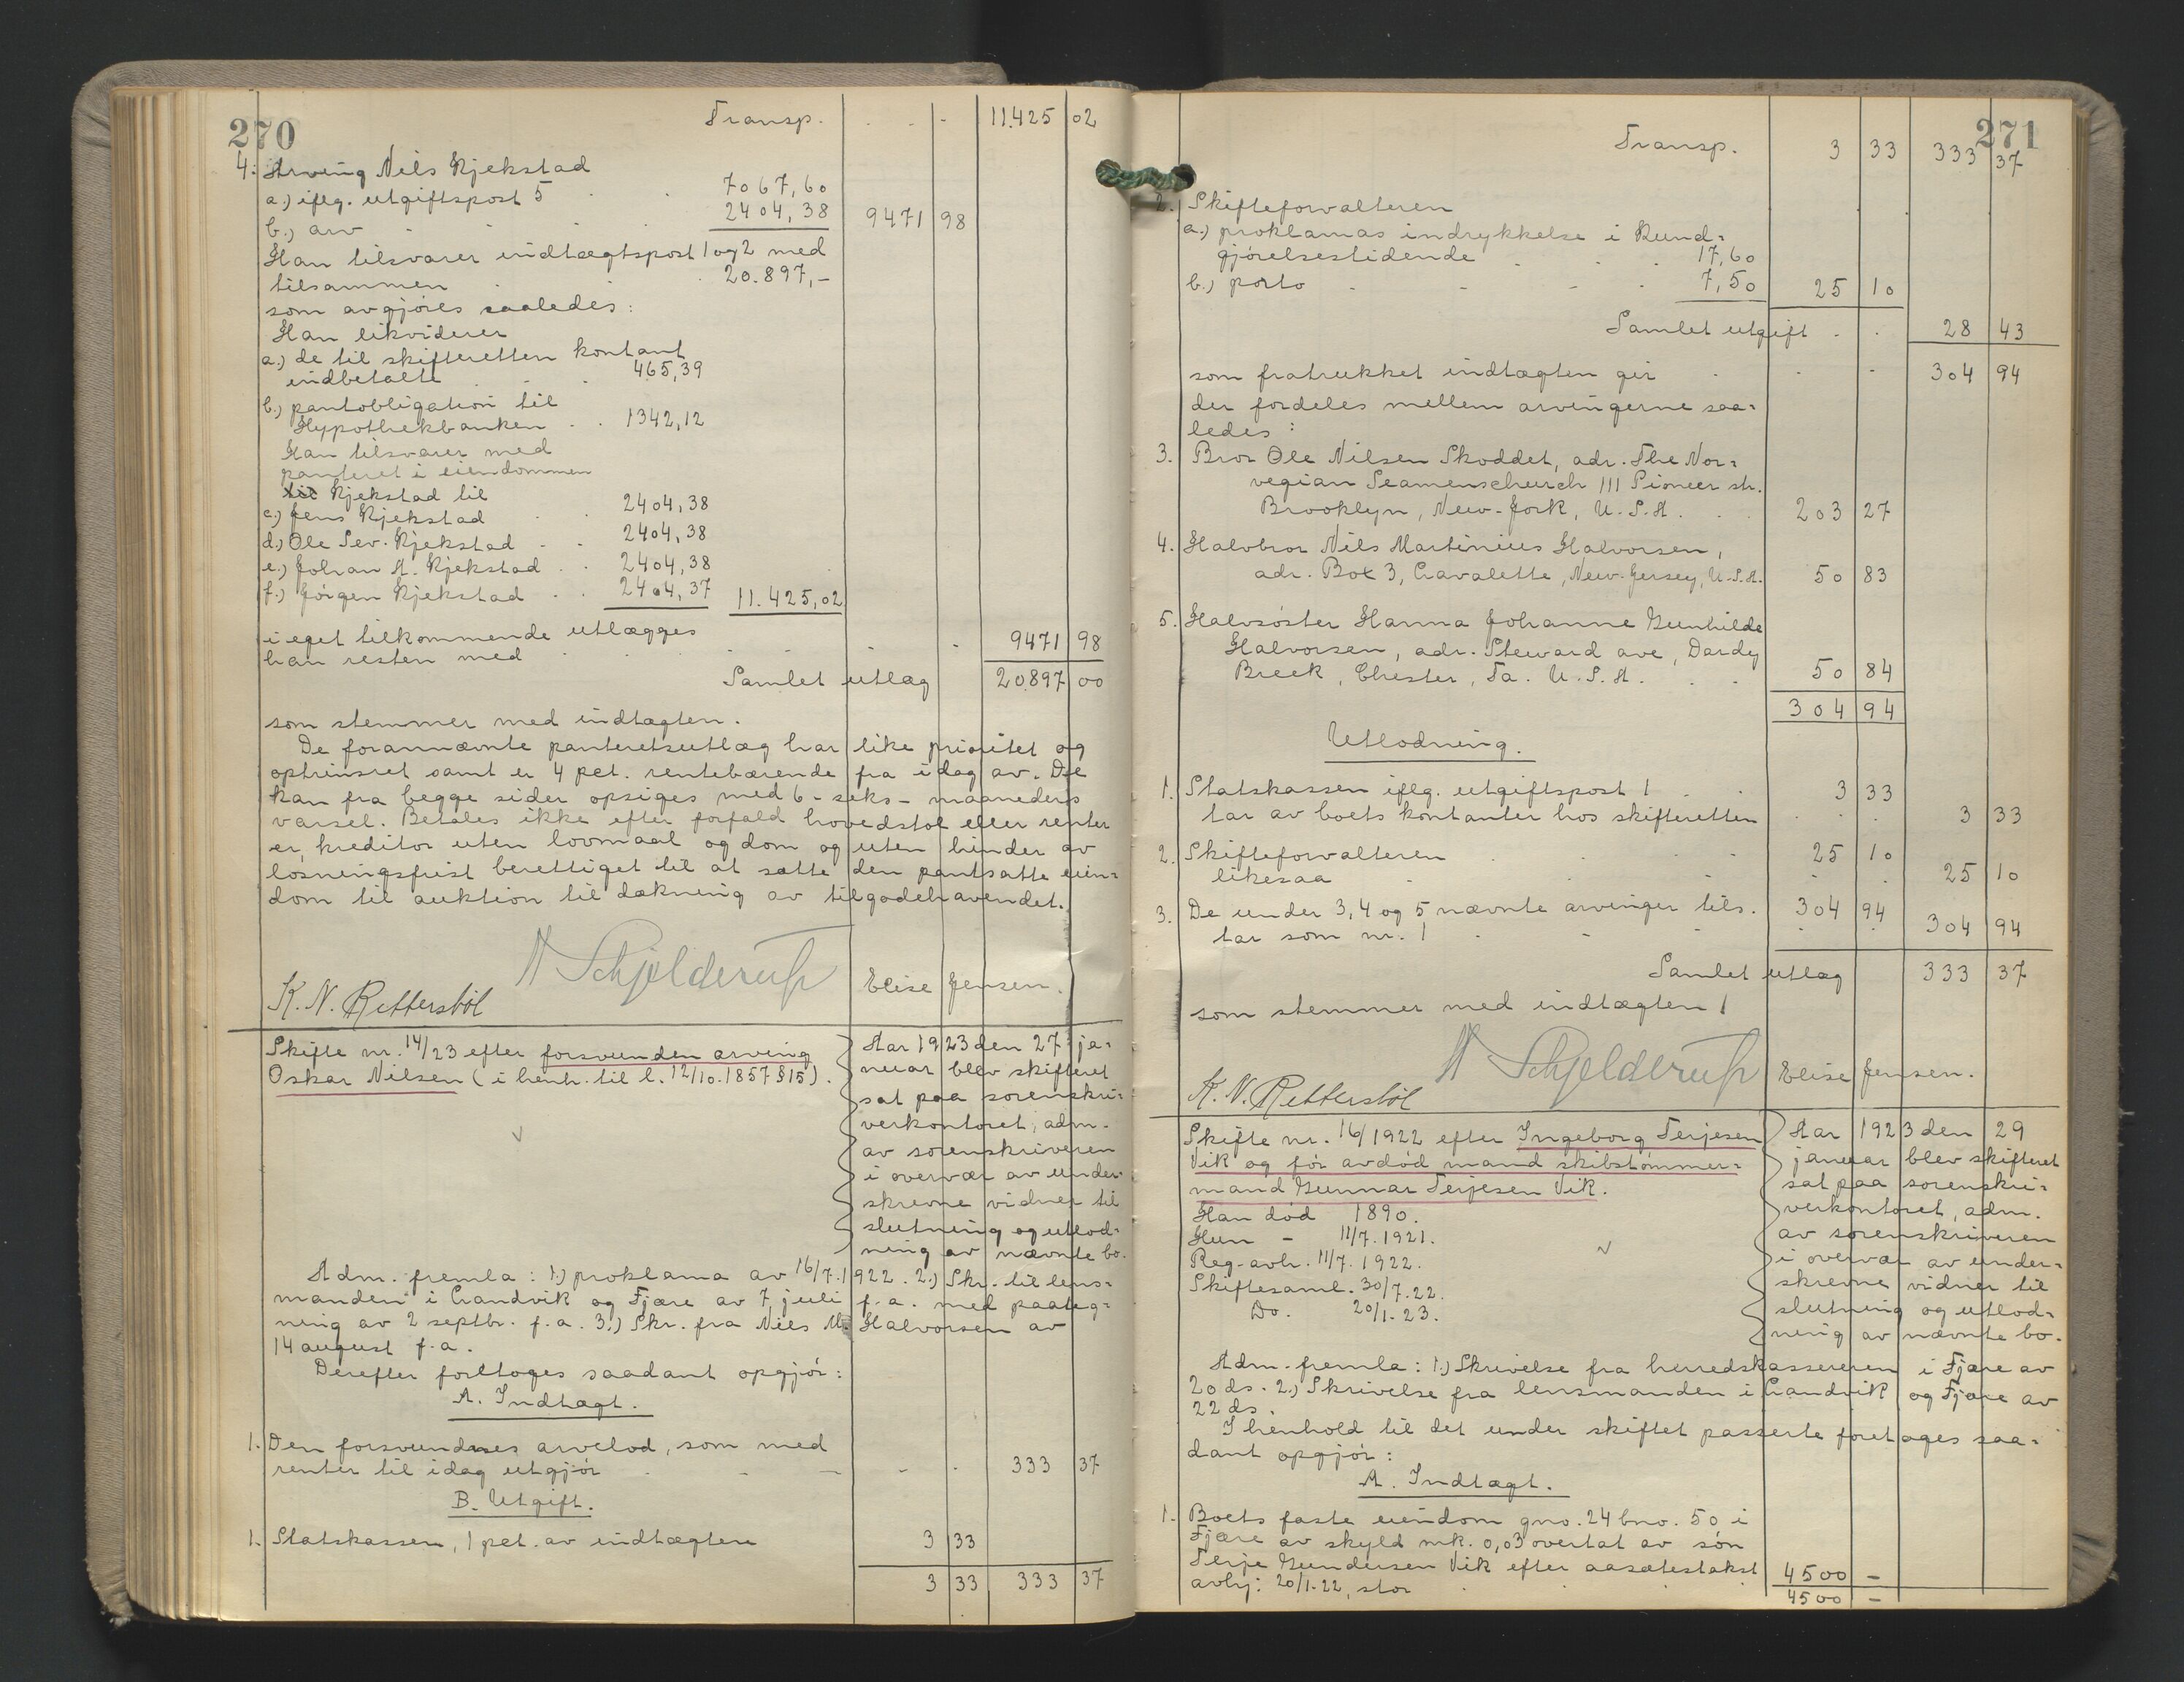 270
Transp. - - - 11.425 02
4. Arving Nils Kjekstad
a.) iflg. utgiftspost 5 7067,60
b.) arv 2404,38 9471 98
Han tilsvarer indtægtspost 1 og 2 med
tilsammen 20.897,-
som avgjøres saaledes:
Han likviderer
a.) de til skifteretten kontant
indbetalte 465,39
b.) pantobligation til
Hypothekbanken 1342,12
Han tilsvarer med
panteret i eiendommen
Kjekstad til
c.) Jens Kjekstad 2404,38
d.) Ole Sev. Kjekstad 2404,38
e.) Johan A. Kjekstad 2404,38
f.) Jörgen Kjekstad 2404,37 11.425,02
i eget tilkommende utlægges
han resten med 9471 98
Samlet utlæg 20.897 00
som stemmer med indtægten.
De forannævnte panteretsutlæg har like prioritet og
optrinsret samt er 4 pct. rentebærende fra idag av. De
kan fra begge sider opsiges med 6 - seks - maaneders
varsel. Betales ikke efter forfald hovedstol eller renter
er kreditor uten lovmaal og dom og uten hinder av
løsningsfrist berettiget til at sætte den pantsatte eien-
dom til auktion til dækning av tilgodehavendet.
A Schjelderup
K. N. Rettersböl Elise Jensen.
Skifte nr. 14/23 efter forsvunden arving
Oskar Nilsen (i henh. til l. 12/10.1857 § 15).
Aar 1923 den 27 ja-
nuar blev skifteret
sat paa sorenskri-
verkontoret, adm.
av sorenskriveren
i overvær av under-
skrevne vidner til
slutning og utlod-
ning av nævnte bo.
Adm. fremla: 1.) proklama av 16/7.1922. 2.) Skr. til lens-
manden i Landvik og Fjære av 7 juli f.a. med paateg-
ning av 2 septbr. f.a. 3.) Skr. fra Niels M. Halvorsen av
14 august f.a.
Derefter foretoges saadant opgjör:
A. Indtægt.
1. Den forsvundnes arvelod, som med
renter til idag utgjör 333 37
B. Utgift.
1. Statskassen, 1 pct. av indtægten 3 33
3 33 333 37
271
Transp. 3 33 333 37
2. Skifteforvalteren
a.) proklamas indrykkelse i Kund-
gjörelsestidende 17,60
b.) porto 7,50 25 10
Samlet utgift 28 43
som fratrukket indtægten gir 304 94
der fordeles mellem arvingerne saa-
ledes:
3. Bror Ole Nilsen Skoddet, adr. The Nor-
vegian Seamenschurch 111 Pioneer str.
Brooklyn, New-Jork, U.S.A. 203 27
4. Halvbror Nils Martinius Halvorsen,
adr. Box 3, Cavalette, New-Jersey, U.S.A. 50 83
5. Halvsöster Hanna Johanne Gunhilde
Halvorsen, adr. Steward ave, Dardy
Breek, Chester, Ta. U.S.A. 50 84
304 94
Utlodning.
1. Statskassen iflg. utgiftspost 1 3 33
tar av boets kontanter hos skifteretten 3 33
2. Skifteforvalteren 25 10
likesaa 25 10
3. De under 3, 4 og 5 nævnte arvinger tils. 304 94
tar som nr. 1 304 94
Samlet utlæg 333 37
som stemmer med indtægten 1
A Schjelderup
K. N. Rettersböl Elise Jensen.
Skifte nr. 16/1922 efter Ingeborg Terjesen
Vik og för avdöd mand skibstömmer-
mand Gunnar Terjesen Vik.
Han död 1890.
Hun - 11/7.1921.
Reg-avh. 11/7.1922.
Skiftesaml. 30/7.22.
Do. 20/1.23.
Aar 1923 den 29
januar blev skifteret
sat paa sorenskri-
verkontoret, adm.
av sorenskriveren
i overvær av under-
skrevne vidner til
slutning og utlod-
ning av nævnte bo.
Adm. fremla: 1.) Skrivelse fra herredskassereren i Fjære av
20 ds. 2.) Skrivelse fra lensmanden i Landvik og Fjære av
22 ds.
I henhold til det under skiftet passerte foretages saa-
dant opgjör:
A. Indtægt.
1. Boets faste eiendom gno. 24 bno. 50 i
Fjære av skyld mk. 0,03 overtat av sön
Terje Gundersen Vik efter aasætestakst
avhj: 20/1-22, stor 4500 -
4500 -